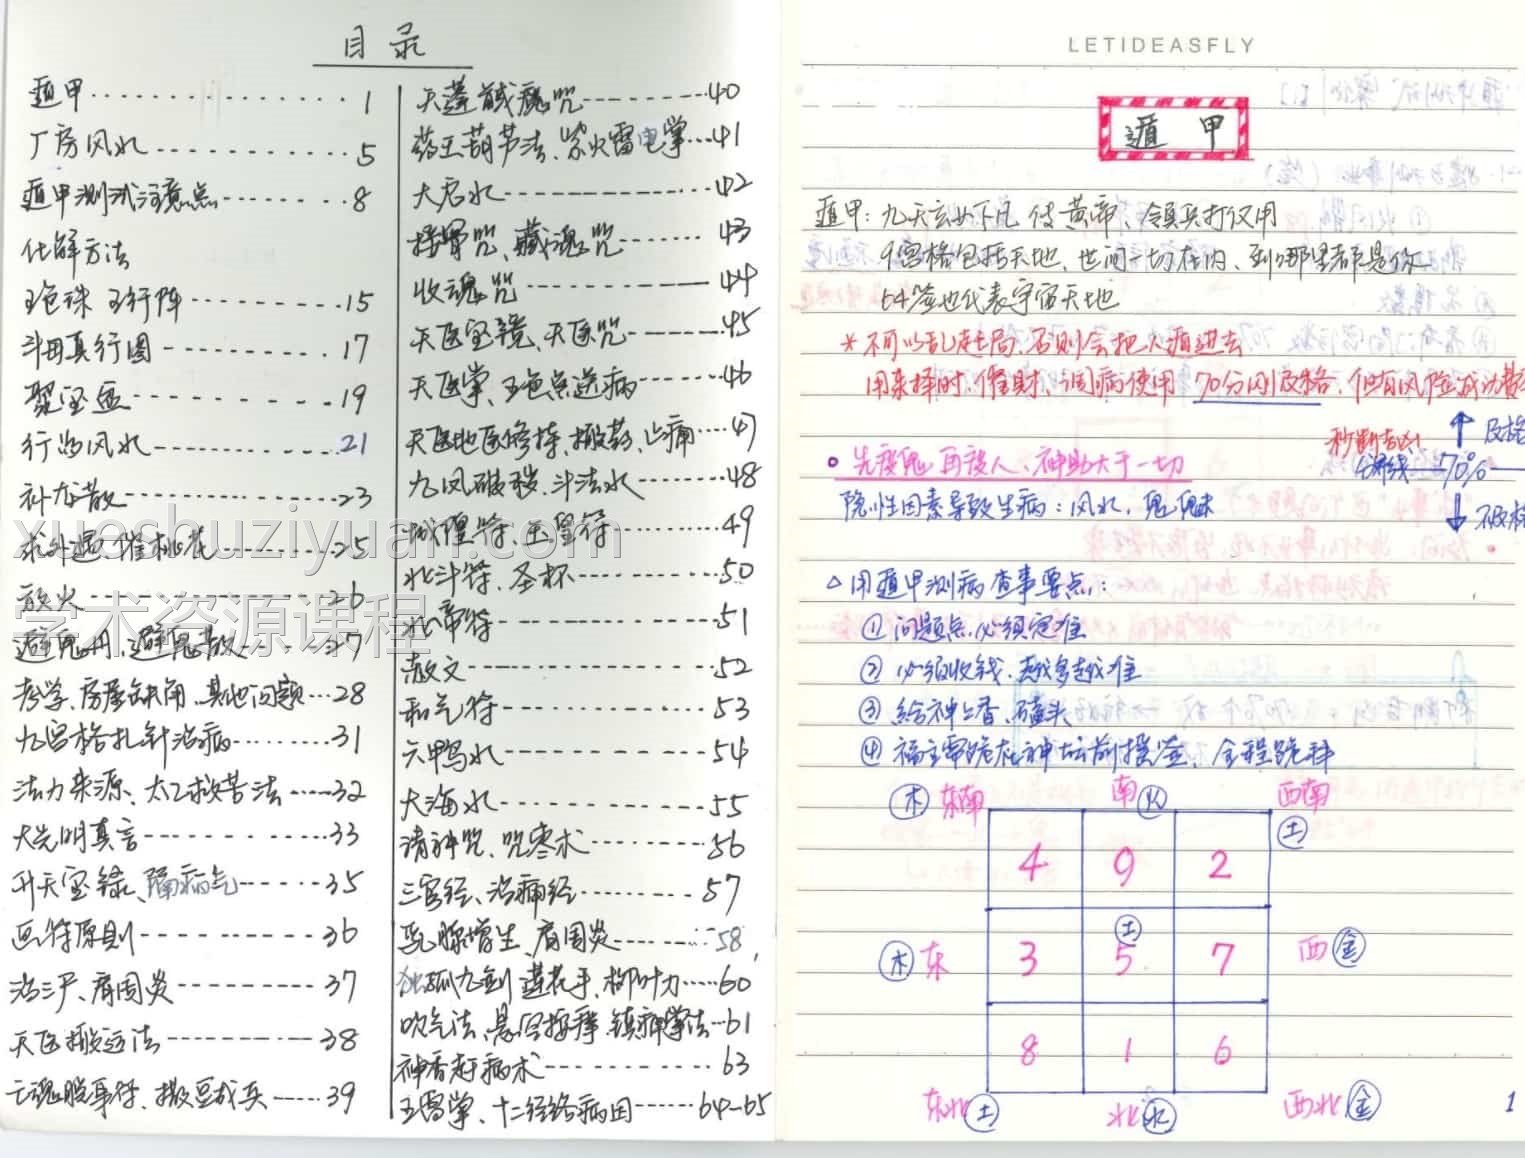 目录
遁甲 1
厂房风水 5
遁甲测试注意点 8
化解方法
五色珠 五行阵 15
斗母真行图 17
聚宝盆 19
行的风水 21
补龙散 23
求外遇、催桃花 25
放火 26
避鬼丹、避鬼散 27
考学、房屋缺角、其他问题 28
九宫格扎针治病 31
法力来源、太乙救苦法 32
大光明真言 33
升天宝箓、隔病气 35
画符原则 36
治三尸、肩周炎 37
天医搬运法 38
亡魂脱身符、撒豆成兵 39
天蓬馘魔咒 40
药王葫芦法、紫火雷电掌 41
大启水 42
接骨咒、藏魂咒 43
收魂咒 44
天医宝镜、天医咒 45
天医掌、五色点送病 46
天医地医修持、搬药、止痛 47
九凤破秽、斗法水 48
城隍符、玉皇符 49
北斗符、圣杯 50
北帝符 51
散文 52
和气符 53
六鸭水 54
大海水 55
请神咒、咒枣术 56
三官经、治痛经 57
乳腺增生、肩周炎 58
独孤九剑、莲花手、柳叶刀 60
吹气法、悬空按摩、镇神掌法 61
神香赶病术 63
五雷掌、十二经络病因 64-65
LETIDEASFLY
遁甲
遁甲：九天玄女下凡传黄帝、领兵打仗用
9宫格包括天地、世间一切在内、到哪里都是你
64签也代表宇宙天地
* 不可以乱起局、否则会把人遁进去
用来择时、催财、调病使用 70分以及格、但有风险成功费
秒断吉凶
分界线 70% 及格
不及格
先度鬼 再渡人、神助大于一切
隐性因素导致生病：风水，鬼魅
△ 用遁甲测病查事要点：
① 问题点必须定准
② 必须收钱、越多越准
③ 给神上香、磕头
④ 福主需跪在神坛前摇签、全程跪拜
木 东南 南 火 西南 土
4 9 2
木 东 3 5 土 7 西 金
8 1 6
东北 土 北 水 西北 金
1
xueshuziyuan.com
学术资源课程